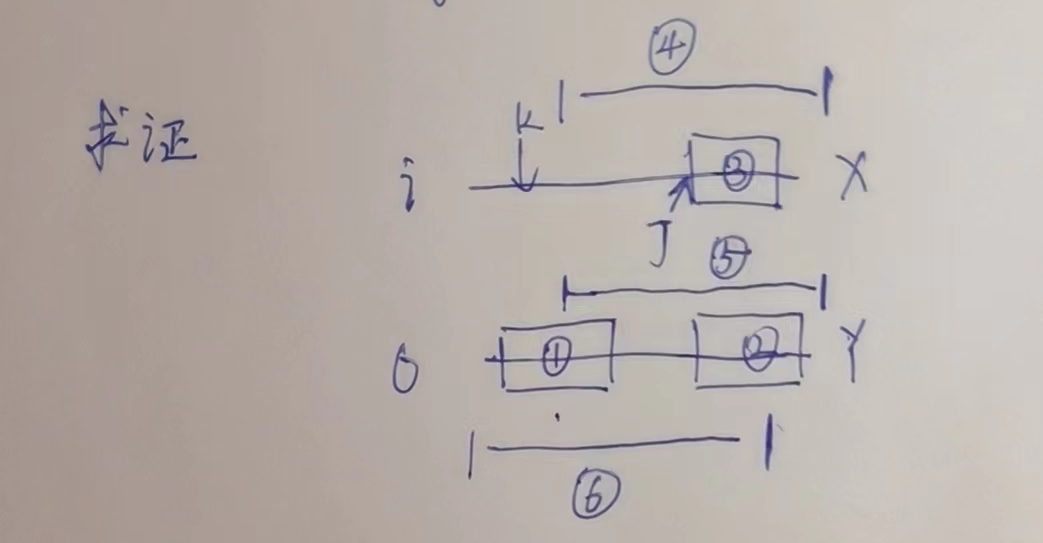 ④
求证
K
i ③ X
J ⑤
0 ① ② Y
⑥